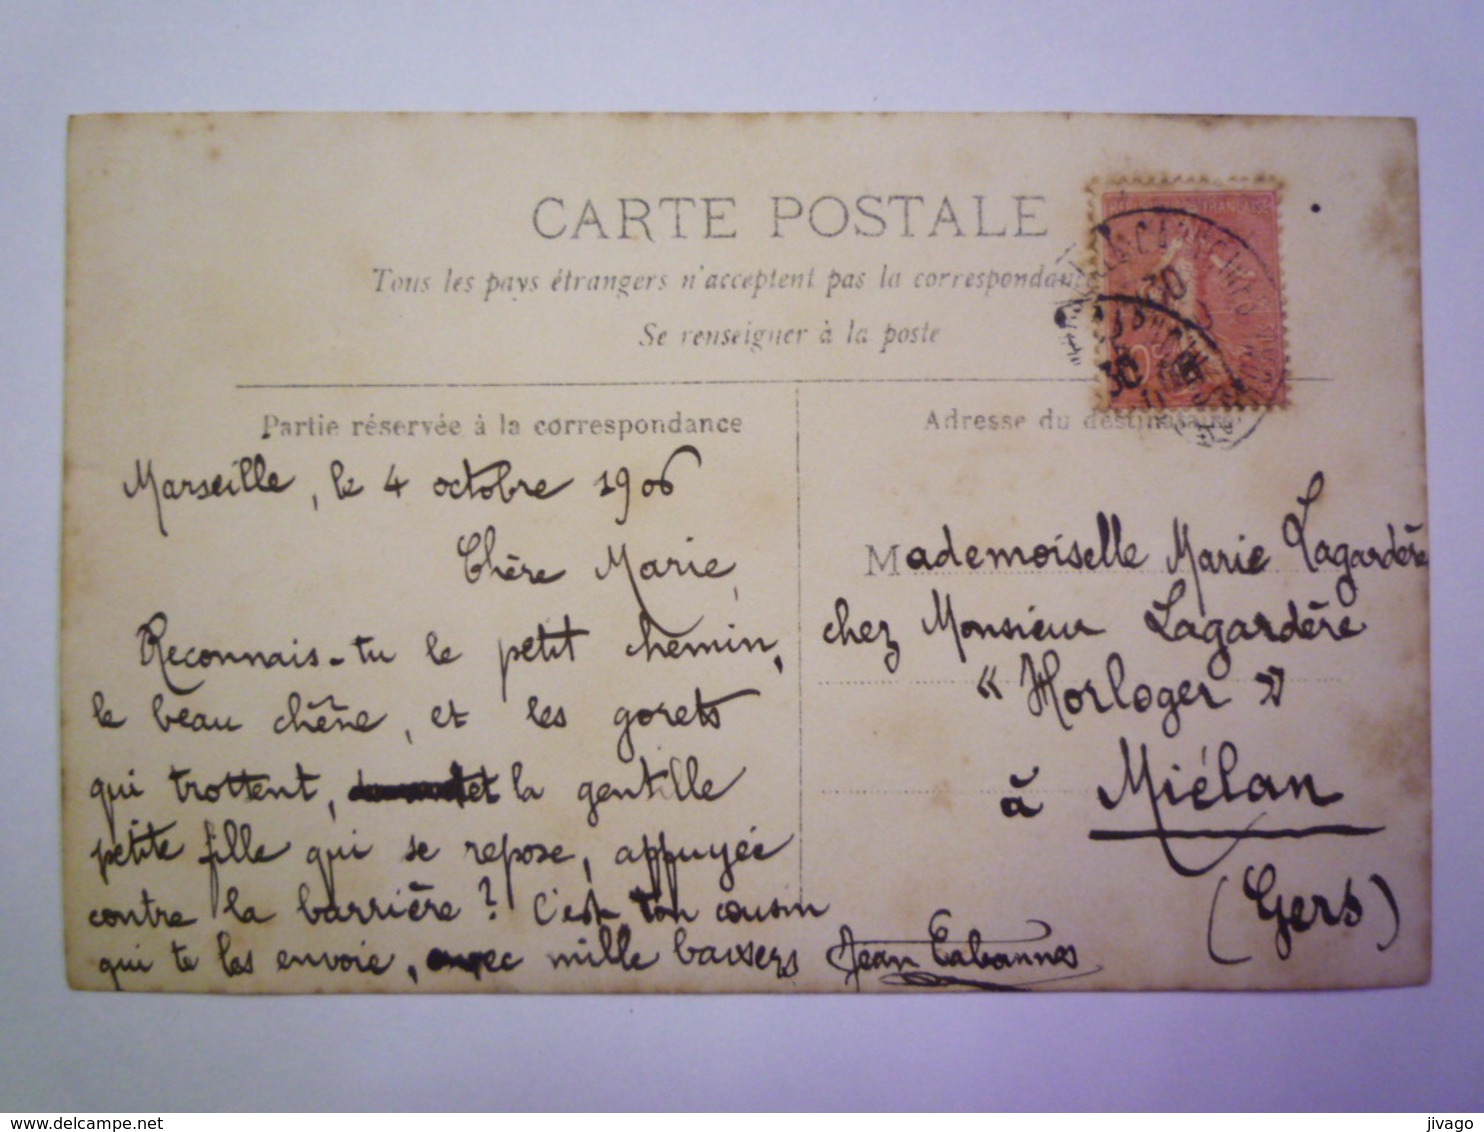 CARTE POSTALE
Tous les pays étrangers n'acceptent pas la
Se renseigner à la poste
Partie réservée à la correspondance
Adresse du destinataire
Marseille, le 4 octobre 1906
Chère Marie,
Reconnais-tu le petit chemin,
le beau chêne, et les gorets
qui trottent, et la gentille
petite fille qui se repose, appuyée
contre la barrière ? C'est ton cousin
qui te les envoie, avec mille baisers
Jean Cabannes
Mademoiselle Marie Lagardère
chez Monsieur Lagardère
« Horloger »
à Miélan
(Gers)
delcampe.net
jivago